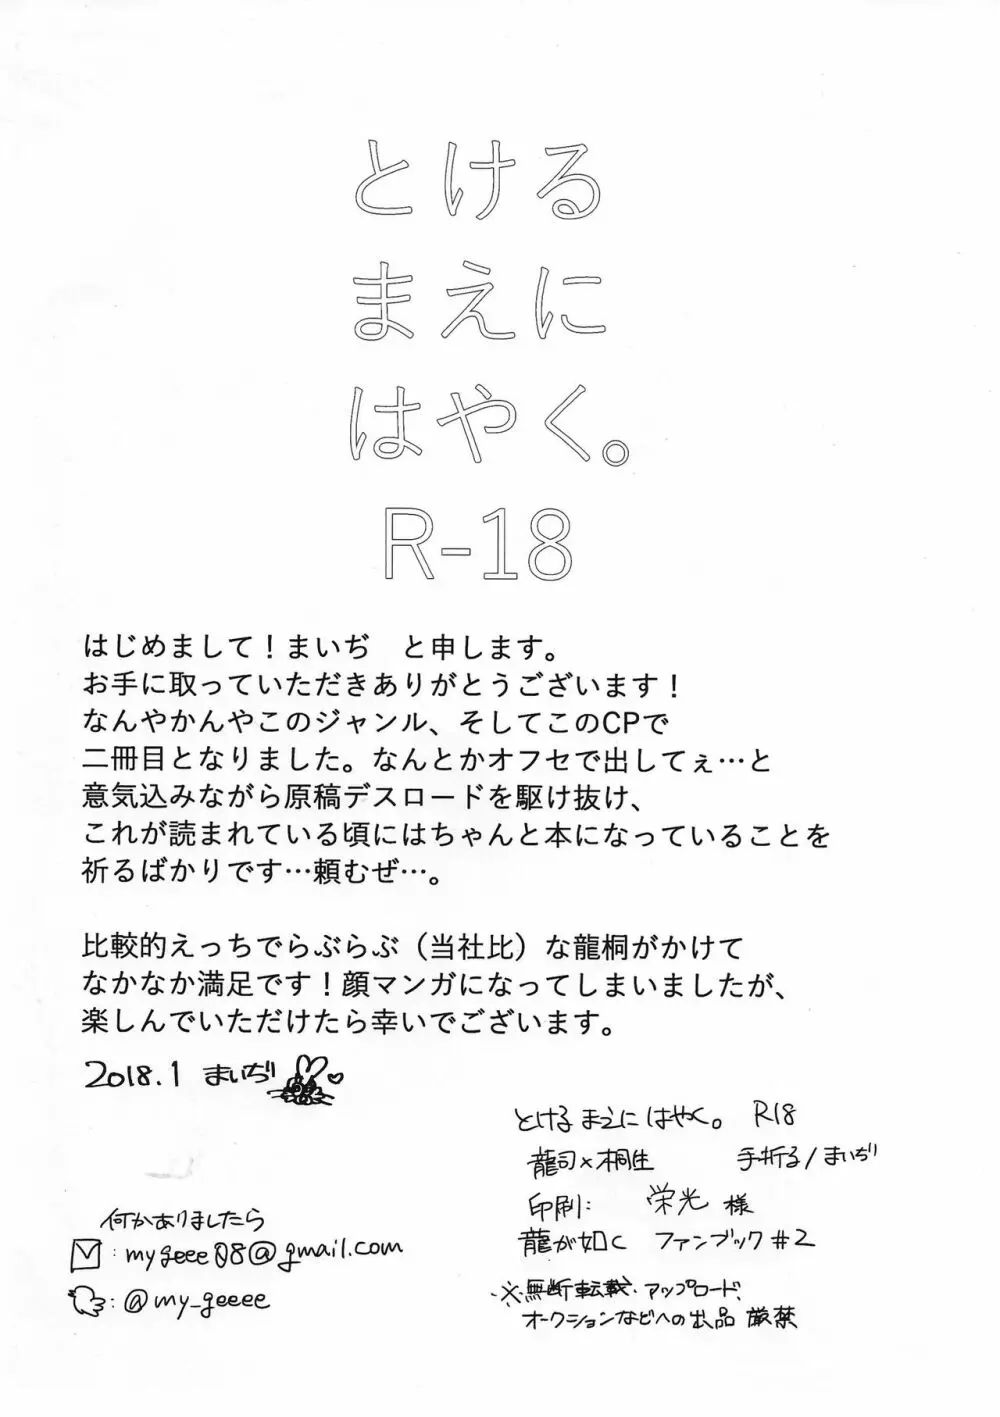 とける
まえに
はやく。
R-18
はじめまして！まいぢ　と申します。
お手に取っていただきありがとうございます！
なんやかんやこのジャンル、そしてこのCPで
二冊目となりました。なんとかオフセで出してぇ…と
意気込みながら原稿デスロードを駆け抜け、
これが読まれている頃にはちゃんと本になっていることを
祈るばかりです…頼むぜ…。
比較的えっちでらぶらぶ（当社比）な龍桐がかけて
なかなか満足です！顔マンガになってしまいましたが、
楽しんでいただけたら幸いでございます。
2018.1 まいぢ
とける まえに はやく。 R18
龍司×桐生 手折る/まいぢ
印刷: 栄光 様
龍が如く ファンブック#2
※無断転載・アップロード、
オークションなどへの出品 厳禁
何かありましたら
:mygeee08@gmail.com
:@my_geeee